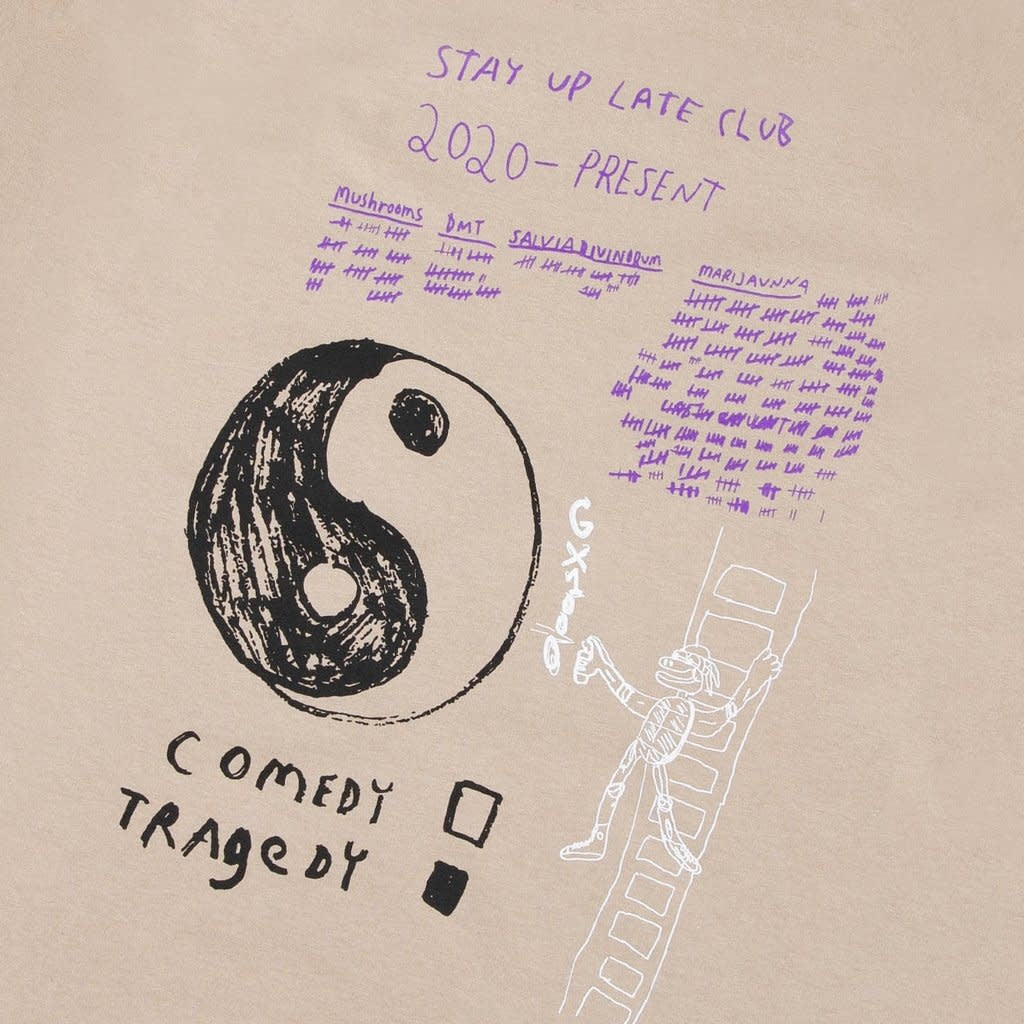 STAY UP LATE CLUB
2020-PRESENT
Mushrooms
DMT
SALVIA DIVINORUM
MARIJAUNNA
COMEDY
TRAgeDY